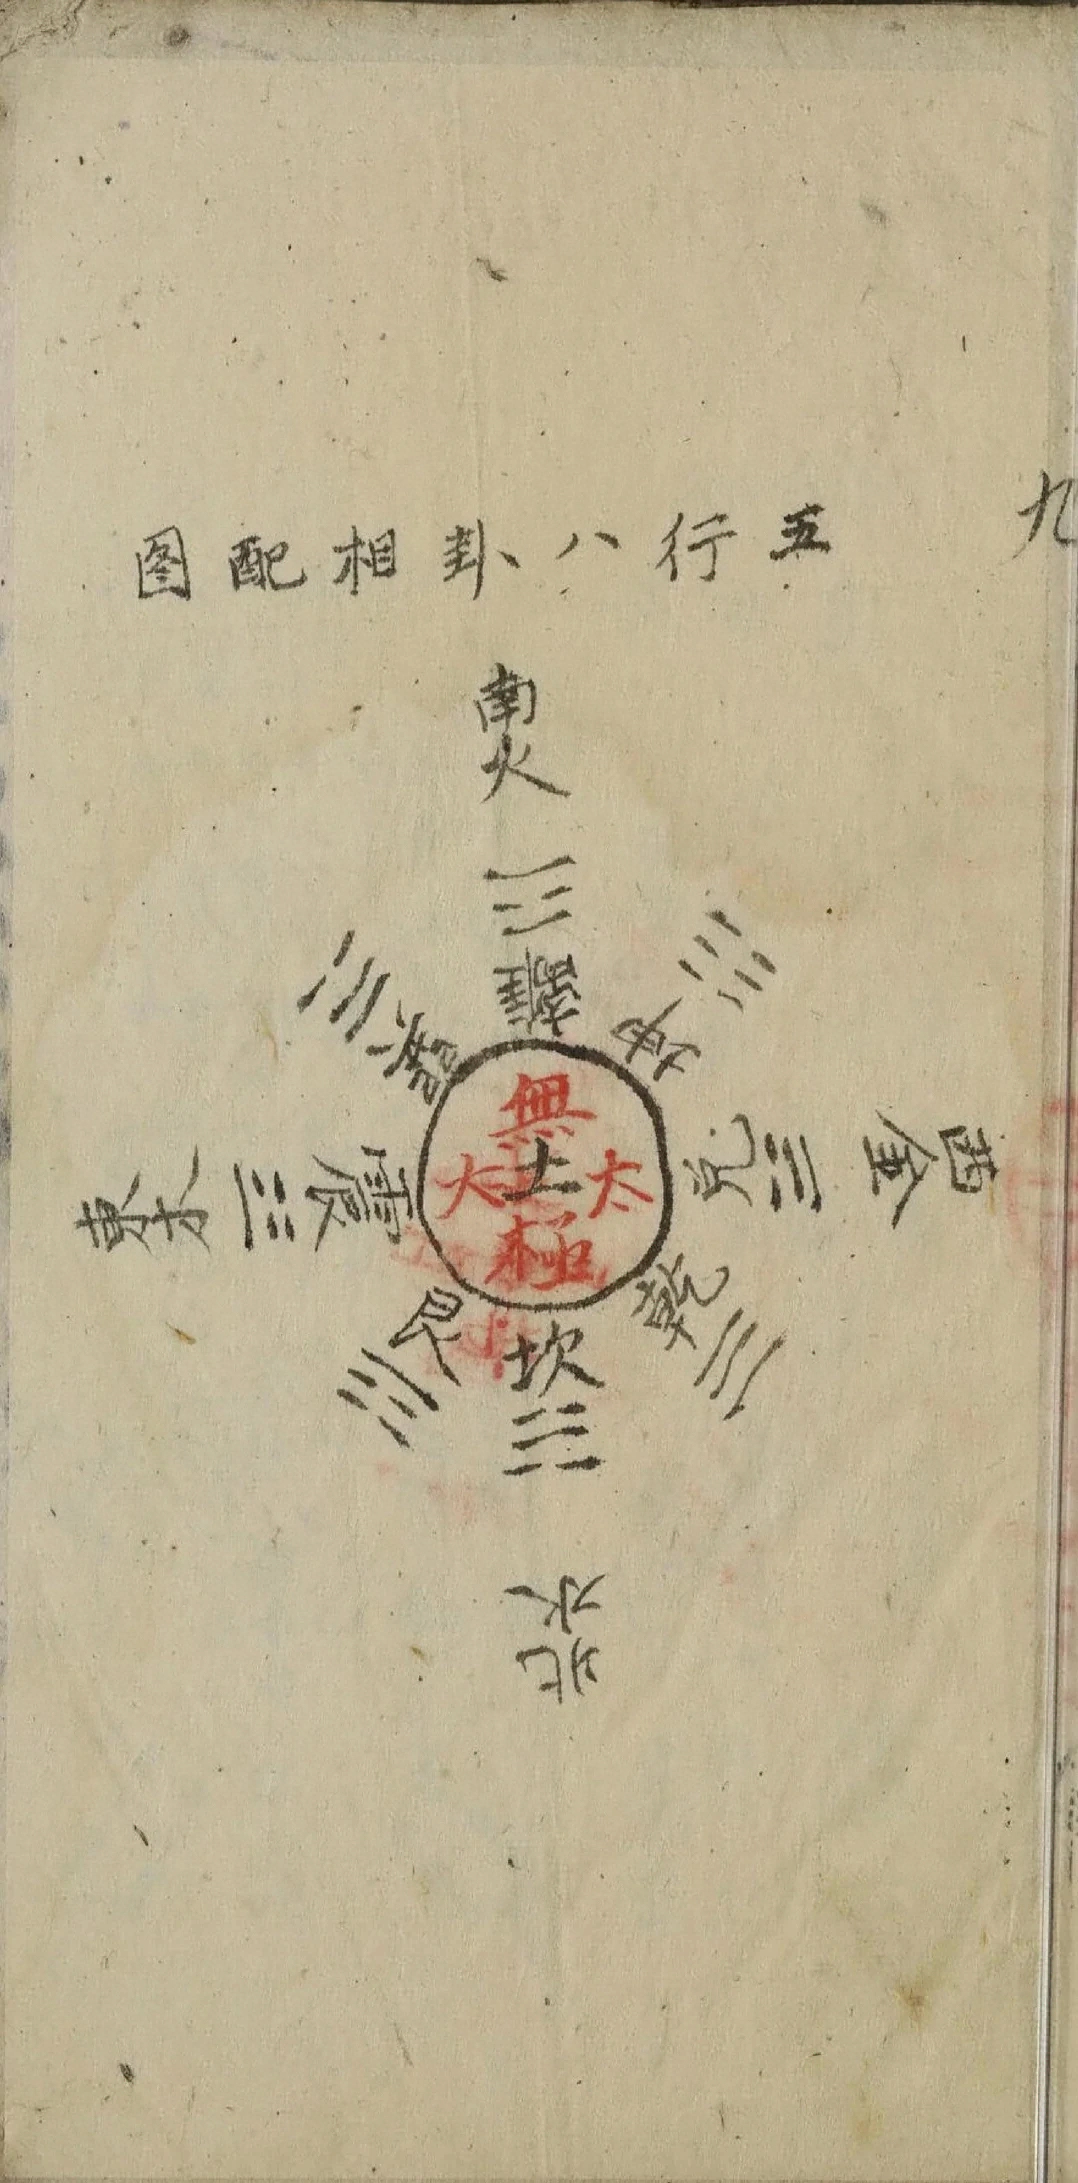 九
五行八卦相配图
南火
離
坤
兌
西金
乾
坎
北水
艮
震
東木
巽
無
太土太
極